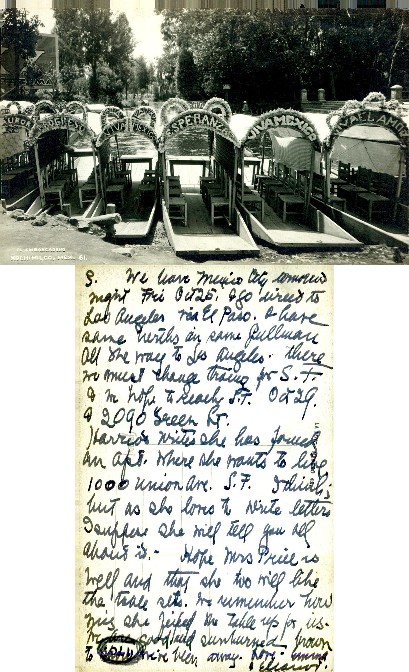 ESPERANZA
VIVA MEXICO
XOCHIMILCO, MEX. 61.
S. We leave Mexico City tomorrow
night Fri Oct 25. & go direct to
Los Angeles via El Paso. & have
same berths in same Pullman
all the way to Los Angeles. there
we must change trains for S.F.
& we hope to reach S.F. Oct 29.
@ 2090 Green St.
Harriet writes she has found
an apt. where she wants to live
1000 Union Ave. S.F.
but as she loves to write letters
I suppose she will tell you all
about it. - Hope Mrs Price is
well and that she too will like
the table sets. We remember how
she fixed the table up for us.
We are good and sunburned! from
we've been away. Love